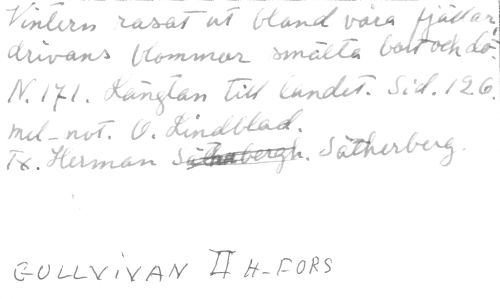 Vintern rasat ut bland våra fjällar,
drivans blommor smälta bort och dö.
N. 171. Längtan till landet. Sid. 126.
mel-not. O. Lindblad.
Tx. Herman Sätherbergh. Sätherberg.
GULLVIVAN II H-FORS